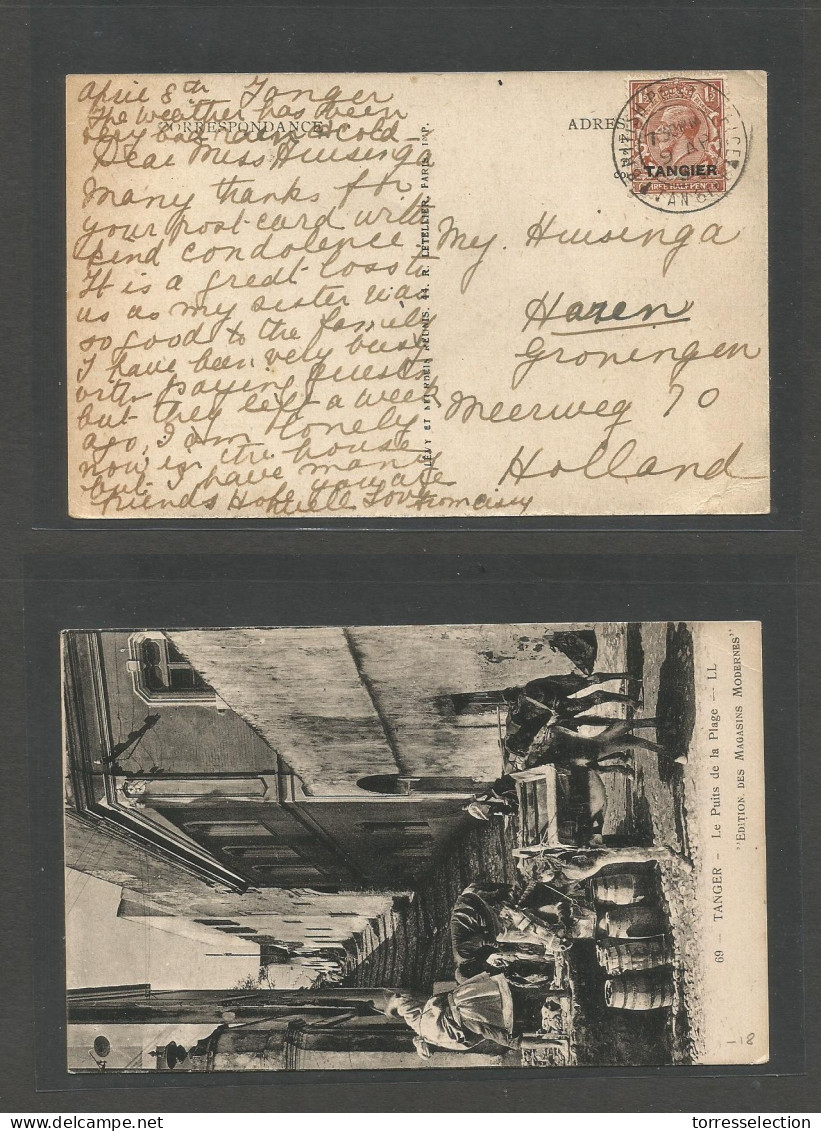 April 8th Tanger
The weather has been
very bad rain & cold
CORRESPONDANCE
Dear Miss Huisinga
Many thanks for
your post-card with
kind condolence,
It is a great loss to
us as my sister was
so good to the family
I have been very busy
with paying guests
but they left a week
ago, I am lonely
now in the house
but I have many
friends Hope you are
well Love from
LEVY ET NEURDEIN RÉUNIS, 44, R. LETELLIER, PARIS, IMP.
ADRES
TANGIER
THREE HALF PENCE
9 AP
Mej. Huisenga
Haren
Groningen
Meerweg 70
Holland
69 TANGER - Le Puits de la Plage - LL
"EDITION DES MAGASINS MODERNES"
-18
torresselection